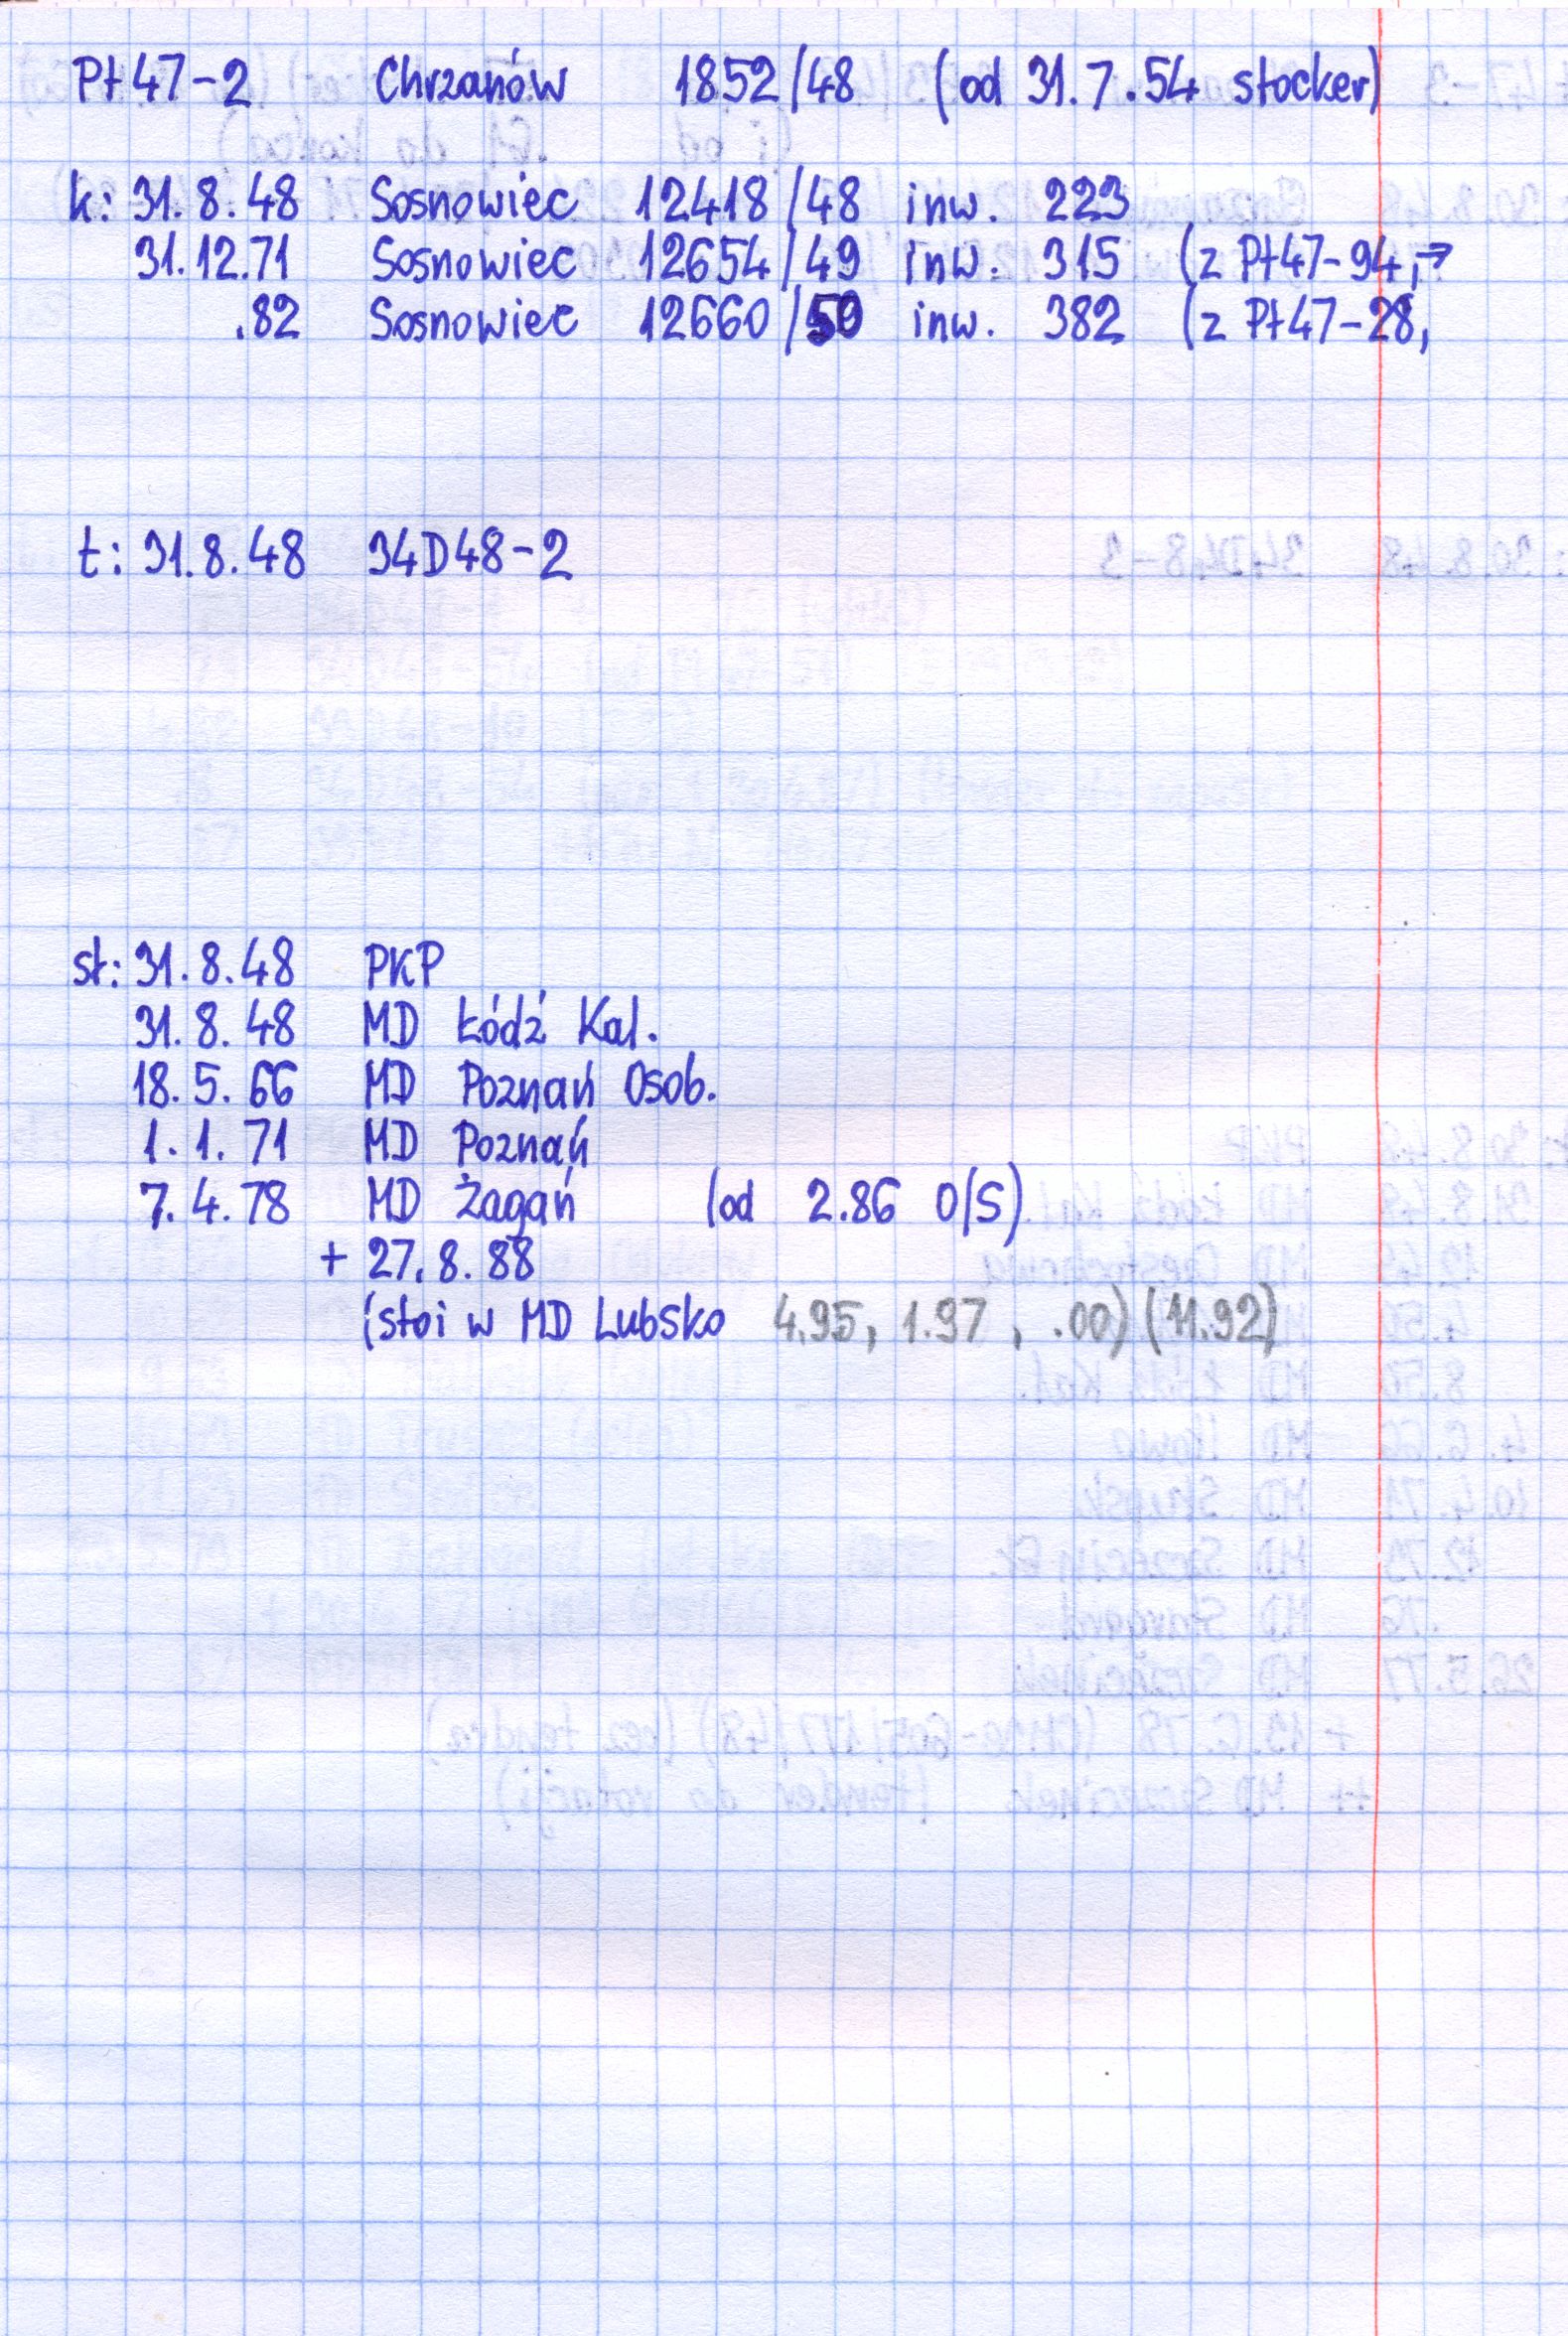 Pt47-2 Chrzanów 1852/48 (od 31.7.54 stocker)
k: 31.8.48 Sosnowiec 12418/48 inw. 223
31.12.71 Sosnowiec 12654/49 inw. 315 (z Pt47-94,→
.82 Sosnowiec 12660/50 inw. 382 (z Pt47-28,
t: 31.8.48 34D48-2
st: 31.8.48 PKP
31.8.48 MD Łódź Kal.
18.5.66 MD Poznań Osob.
1.1.71 MD Poznań
7.4.78 MD Żagań (od 2.86 O/S)
+ 27.8.88
(stoi w MD Lubsko 4.95, 1.97, .00) (11.92)